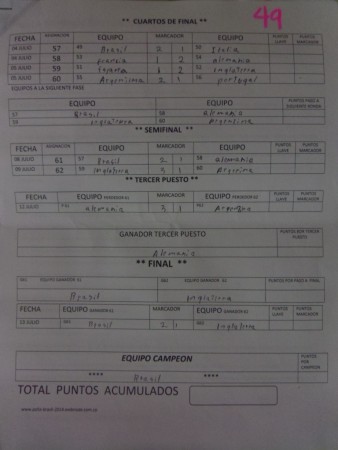 49
** CUARTOS DE FINAL **
FECHA ASIGNACION EQUIPO MARCADOR EQUIPO PUNTOS LLAVE PUNTOS MARCADOR
04 JULIO 57 49 Brasil 2 1 50 Italia
04 JULIO 58 53 Francia 1 2 54 alemania
05 JULIO 59 51 España 1 2 52 inglaterra
05 JULIO 60 55 Argentina 2 1 56 portugal
EQUIPOS A LA SIGUIENTE FASE
EQUIPO EQUIPO PUNTOS PASO A SIGUIENTE RONDA
57 Brasil 58 alemania
59 inglaterra 60 Argentina
** SEMIFINAL **
FECHA ASIGNACION EQUIPO MARCADOR EQUIPO PUNTOS LLAVE PUNTOS MARCADOR
08 JULIO 61 57 Brasil 2 1 58 alemania
09 JULIO 62 59 inglaterra 1 60 Argentina
** TERCER PUESTO **
FECHA EQUIPO PERDEDOR 61 MARCADOR EQUIPO PERDEDOR 62 PUNTOS LLAVE PUNTOS MARCADOR
12 JULIO alemania 1 Argentina
GANADOR TERCER PUESTO PUNTOS POR TERCER PUESTO
Alemania
** FINAL **
EQUIPO GANADOR 61 EQUIPO GANADOR 62 PUNTOS POR PASO A FINAL
Brasil inglaterra
FECHA EQUIPO GANADOR 61 MARCADOR EQUIPO GANADOR 62 PUNTOS LLAVE PUNTOS MARCADOR
13 JULIO Brasil 2 1 inglaterra
EQUIPO CAMPEON PUNTOS POR CAMPEON
**** Brasil ****
TOTAL PUNTOS ACUMULADOS